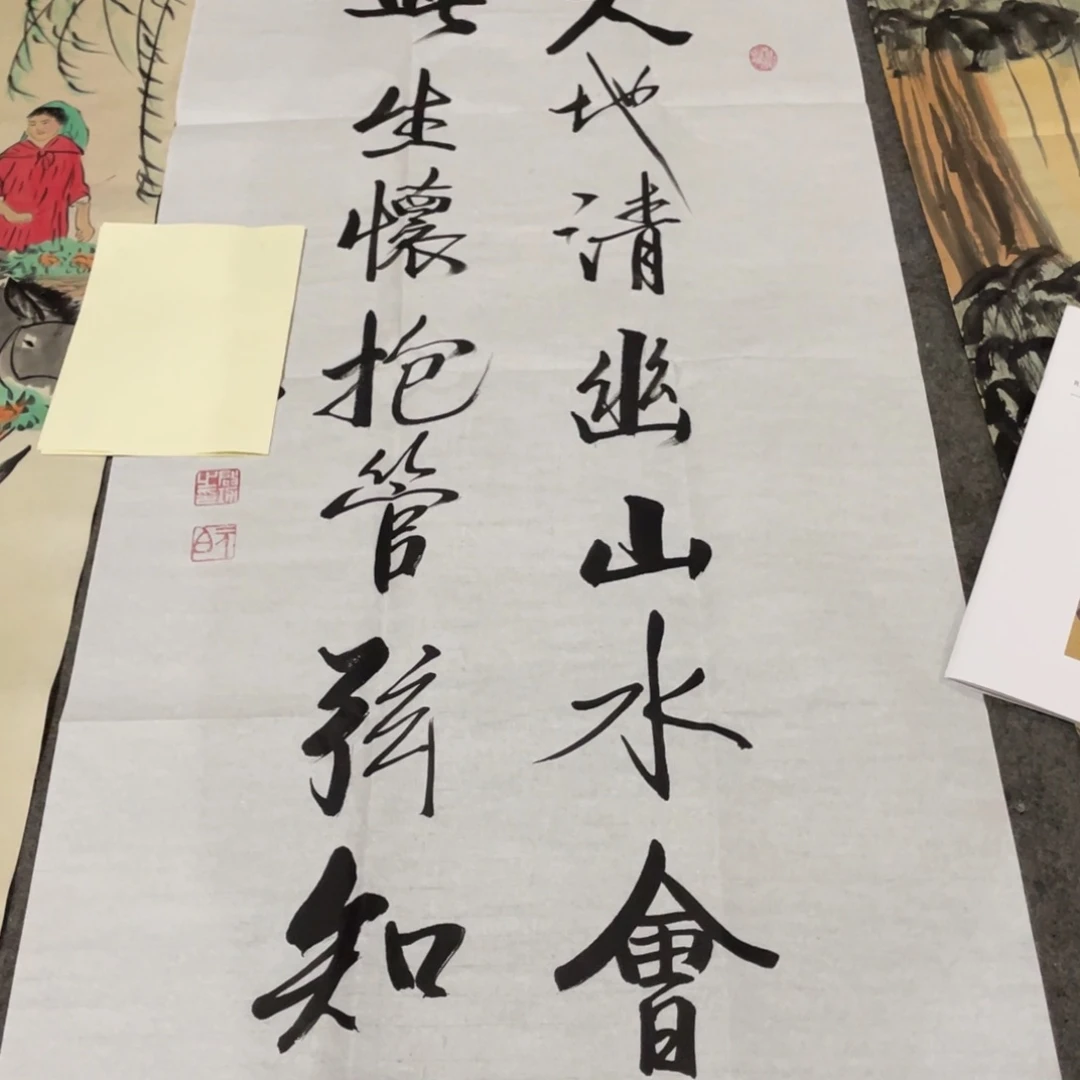 人地清幽山水會
生懷抱管弦知